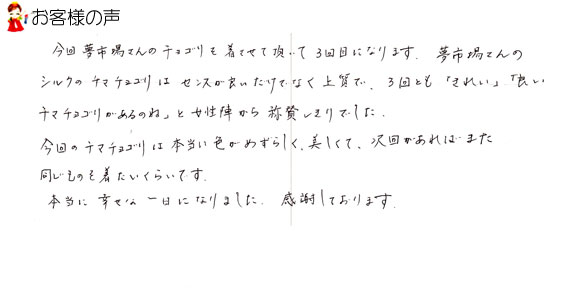 お客様の声
今回夢市場さんのチョゴリを着させて頂いて3回目になります. 夢市場さんの
シルクのチマチョゴリはセンスが良いだけでなく上質で、3回とも「きれい」「良い
チマチョゴリがあるのね」と女性陣から称賛しきりでした.
今回のチマチョゴリは本当に色がめずらしく、美しくて、次回があればまた
同じものを着たいくらいです.
本当に幸せな一日になりました. 感謝しております.